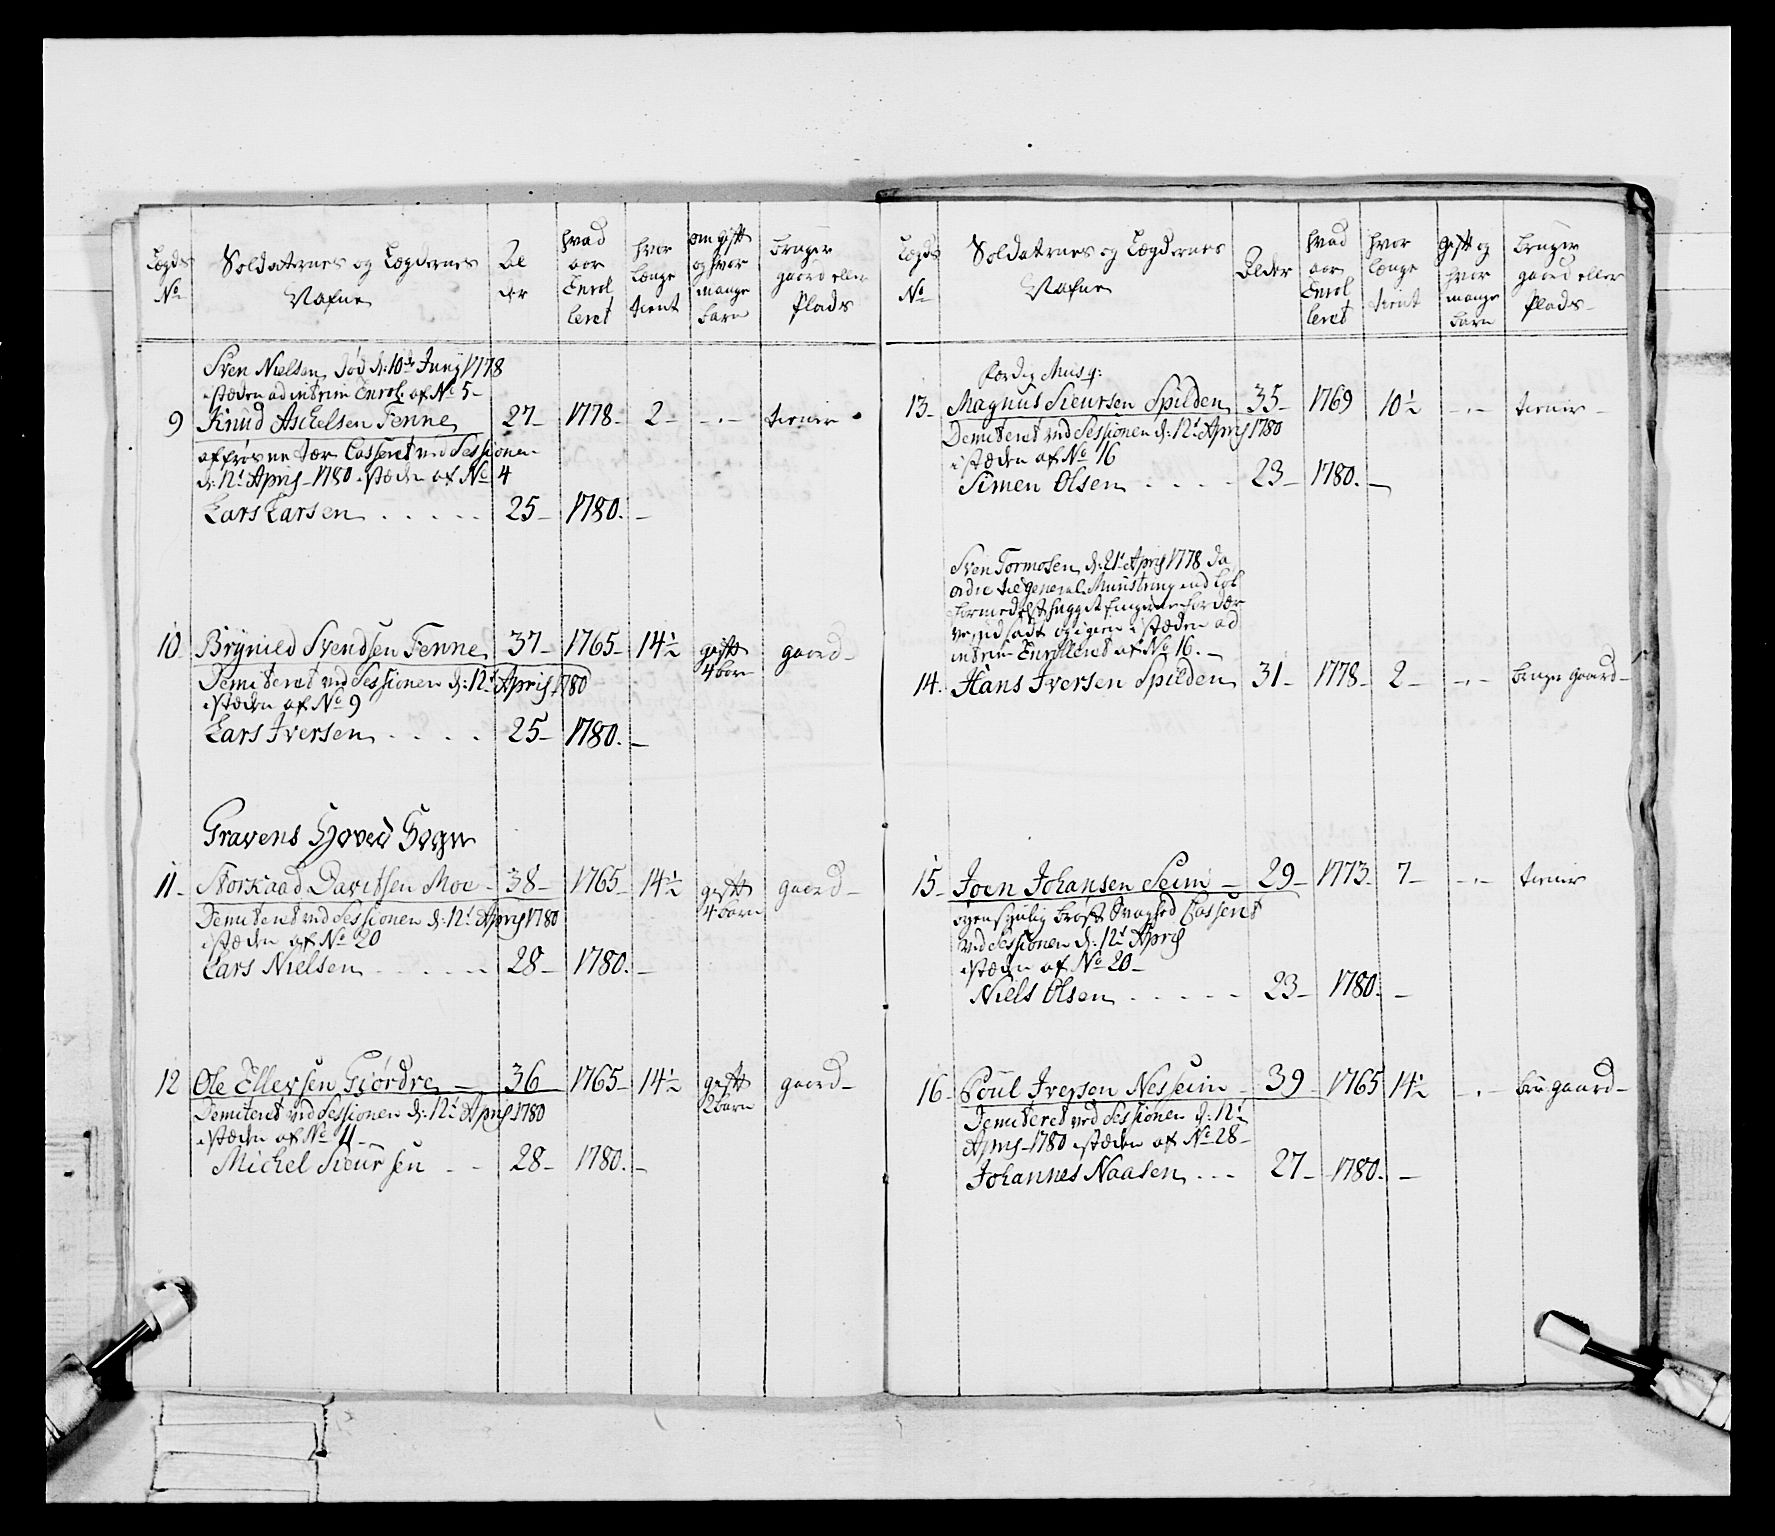 Lægds No | Soldaternes og Lægdernes Nafne | Al der | hvad aar Enrol leret | hvor Længe tient | om gift og hvor mange barn | bruger gaard eller Plads
Sven Nielsen død d: 10de Junÿ 1778
istæden ad intrim Enrol. af No 5 -
9 | Knud Aschelsen Tenne | 27 - | 1778 - | 2 - | - . - | tiener
Casseret ved Sessionen
d: 12t April 1780 istæden af No 4
Lars Larsen . . . . . | 25 - | 1780. | -
10 | Brÿnild Svendsen Tenne | 37 - | 1765 - | 14½ | gift 4 børn | gaard -
Demiteret ved Sessionen d: 12t April 1780
istæden af No 9
Lars Iversen . . . . | 25 - | 1780. | -
Gravens Hoved Sogn
11 - | Storkaad Davitsen Moe - | 38 - | 1765 - | 14½ | gift 4 børn | gaard -
Demiteret ved Sessionen d: 12t April 1780
istæden af No 20
Lars Nielsen . . . . . | 28 - | 1780. | -
12 | Ole Ellefsen Giørdre - | 36 | 1765 - | 14½ | gift 2 barn | gaard -
Demiteret ved Sessionen d: 12t April 1780
istæden af No 11 -
Michel Sieursen - - | 28 - | 1780. | -
Lægds No | Soldaternes og Lægdernes Nafne | Alder | hvad aar Enrol leret | hvor Længe tient | gift og hvor mange barn | bruger gaard eller Plads -
Musq:
13 - | Magnus Sieursen Spilden | 35 - | 1769 | 10½ | - . - | tiener -
Demiteret ved Sessionen d: 12t April 1780
istæden af No 16
Simen Olsen . . . . | 23 - | 1780. | -
Sven Tormosen d: 21t April 1778 da
ordre til General Munstring
formedelst hugget fingerne
og igien istæden ad
intrim Enrolleret af No 16. -
14. | Hans Iversen Spilden | 31 - | 1778 - | 2 - | - . - | bruger gaard -
15 - | Joen Johansen Seim - | 29 - | 1773. | 7 - | - . - | tiener
brøst Svaghed Casseret
ved Sessionen d: 12t April
istæden af No 20 -
Niels Olsen . . . . . | 23 - | 1780. | -
16 - | Poul Iversen Nesseim | 39 - | 1765 | 14½ | - . - | bru gaard -
Demiteret ved Sessionen d: 12t
April - 1780 istæden af No 28 -
Johannes Naasen . . . | 27 - | 1780. | -